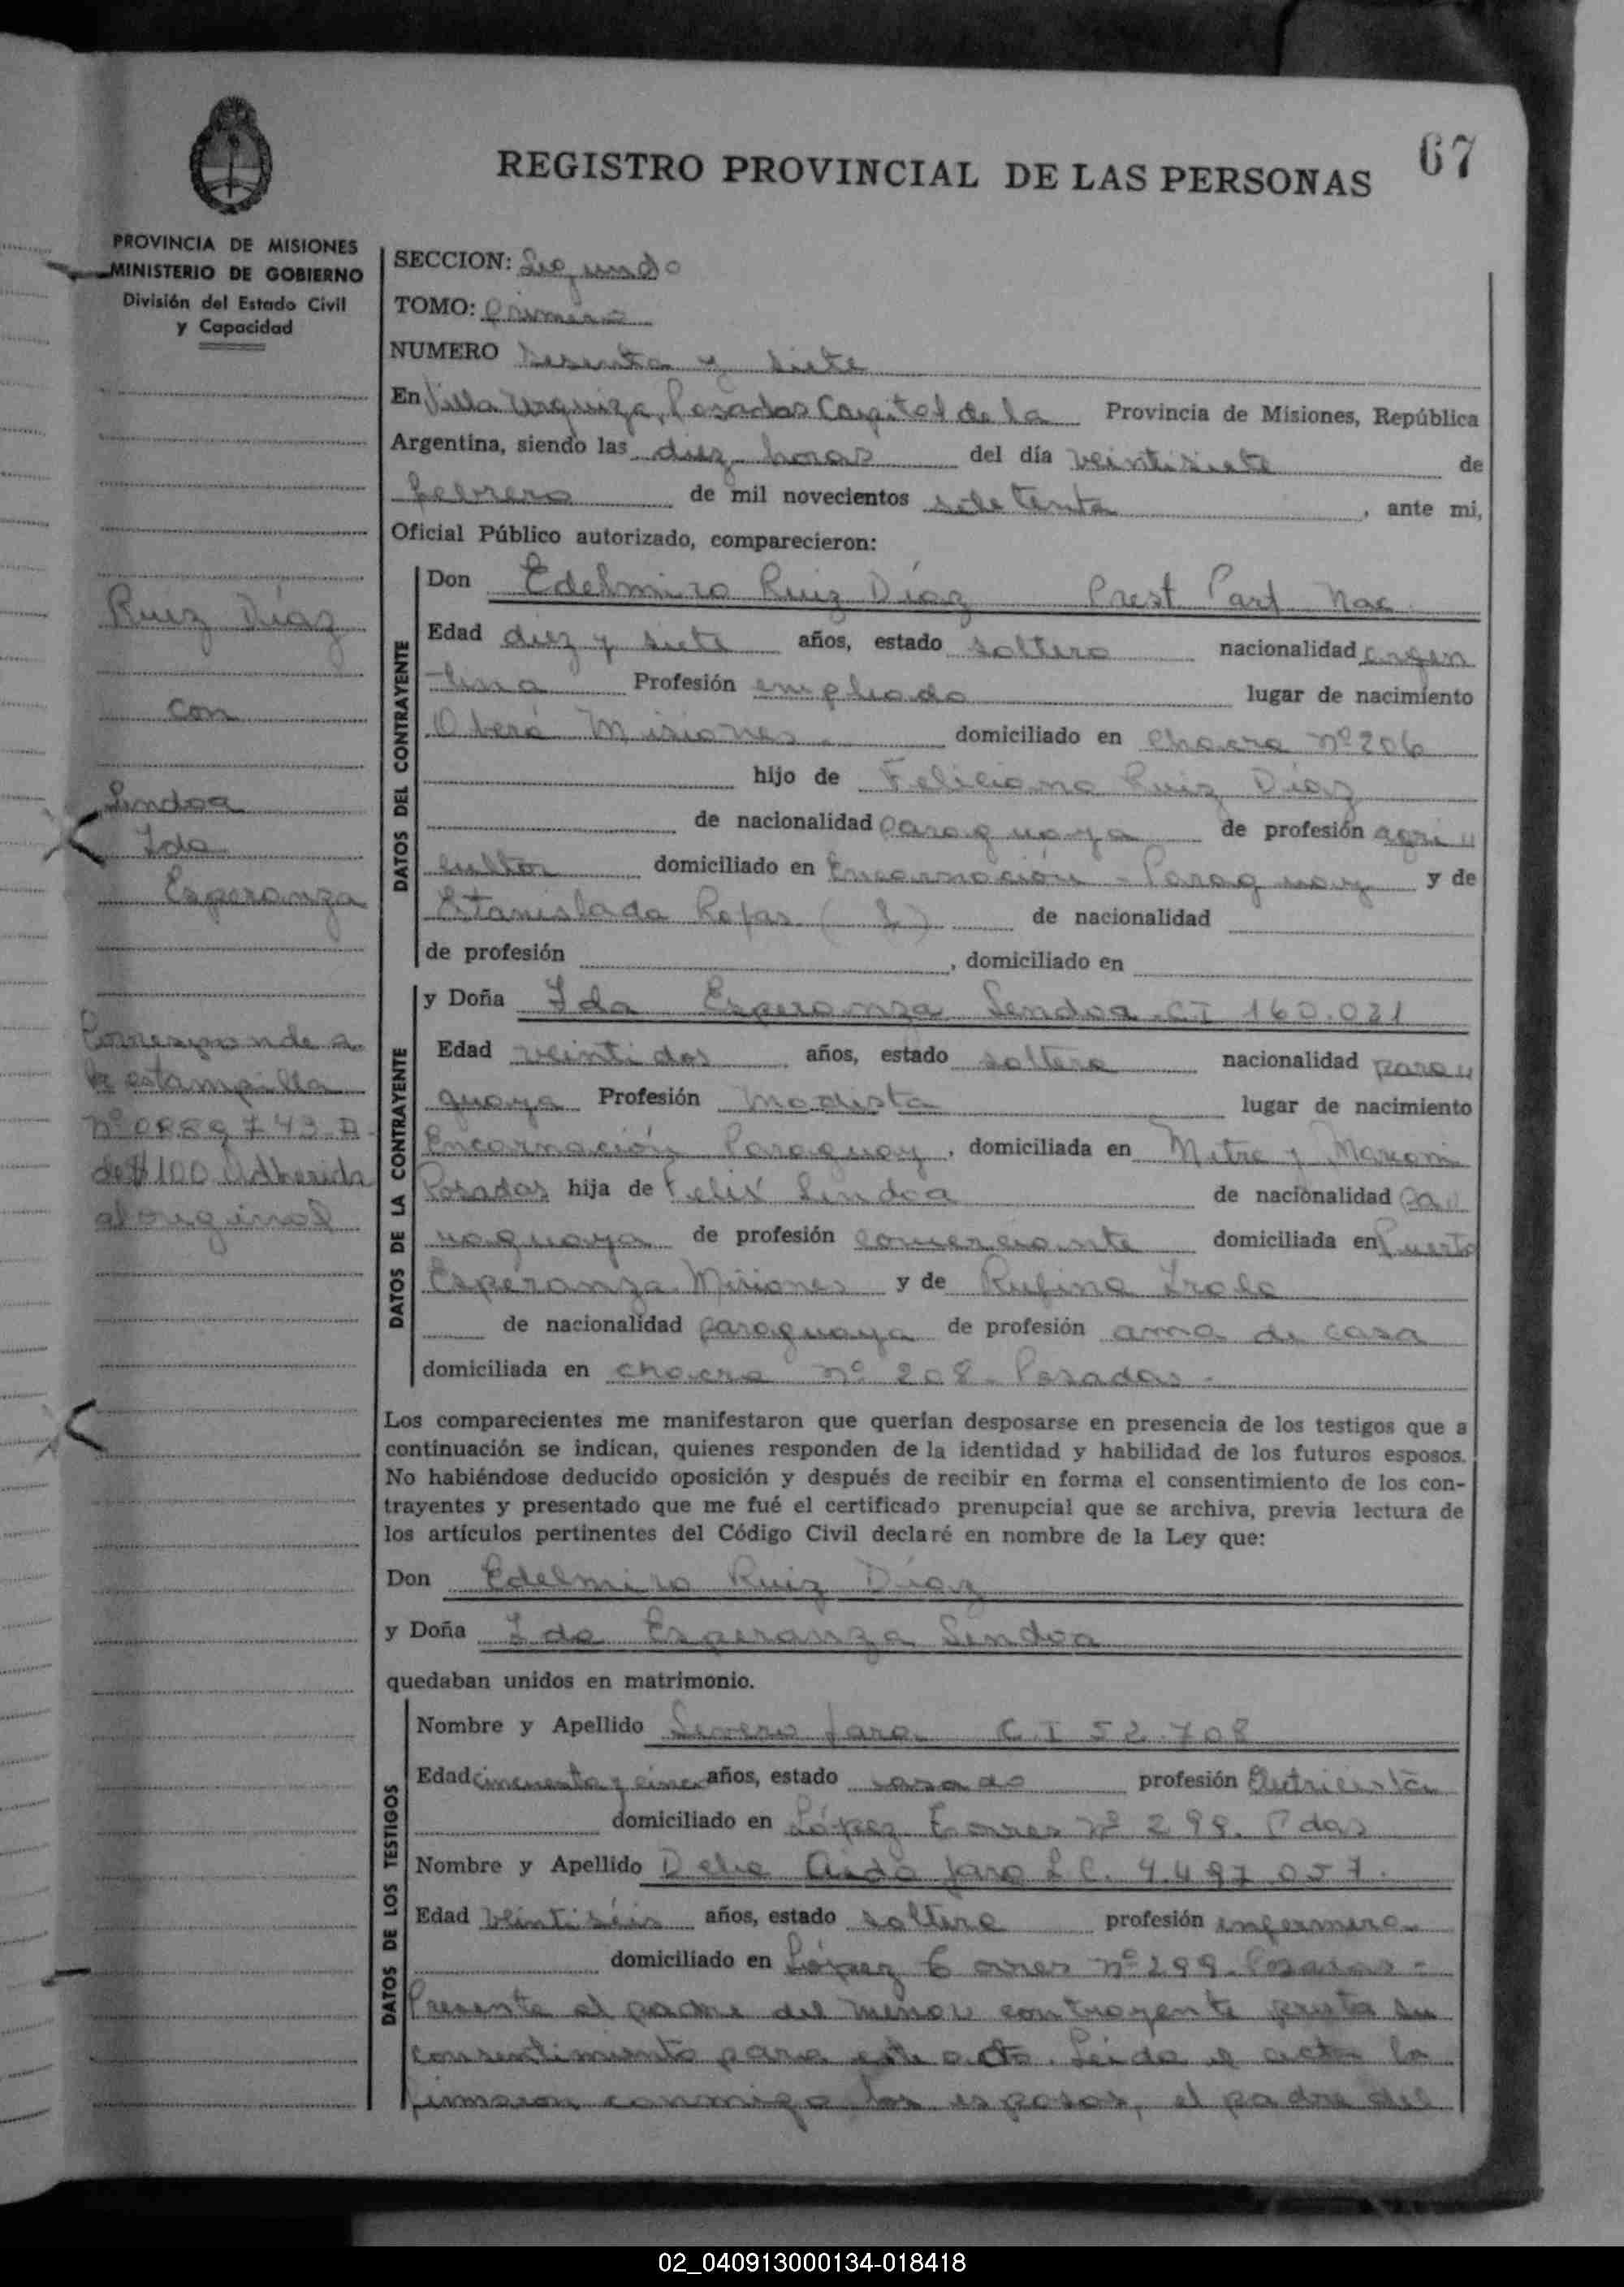 67
REGISTRO PROVINCIAL DE LAS PERSONAS
PROVINCIA DE MISIONES
MINISTERIO DE GOBIERNO
División del Estado Civil
y Capacidad
Ruiz Díaz
con
Sendoa
Ida
Esperanza
Corresponde a
la estampilla
Nº 0889743 A
de $ 100 Adherida
al original
SECCION: Segundo
TOMO: primero
NUMERO sesenta y siete
En Villa Urquiza, Posadas Capital de la Provincia de Misiones, República
Argentina, siendo las diez horas del día veintisiete de
febrero de mil novecientos setenta, ante mi,
Oficial Público autorizado, comparecieron:
DATOS DEL CONTRAYENTE
Don Edelmiro Ruiz Díaz Prest. Part. Nac.
Edad diez y siete años, estado soltero nacionalidad argen
tina Profesión empleado lugar de nacimiento
Oberá Misiones domiciliado en chacra nº 206
hijo de Feliciano Ruiz Díaz
de nacionalidad paraguaya de profesión agri
cultor domiciliado en Encarnación - Paraguay y de
Estanislada Rojas ( ) de nacionalidad
de profesión , domiciliado en
DATOS DE LA CONTRAYENTE
y Doña Ida Esperanza Sendoa. CI 160.031
Edad veintidos años, estado soltera nacionalidad para
guaya Profesión Modista lugar de nacimiento
Encarnación Paraguay, domiciliada en Mitre y Marconi
Posadas hija de Felix Sendoa de nacionalidad pa
raguaya de profesión comerciante domiciliada en Puerto
Esperanza Misiones y de Rufina Irala
de nacionalidad paraguaya de profesión ama de casa
domiciliada en chacra nº 208 - Posadas -
Los comparecientes me manifestaron que querían desposarse en presencia de los testigos que a
continuación se indican, quienes responden de la identidad y habilidad de los futuros esposos.
No habiéndose deducido oposición y después de recibir en forma el consentimiento de los con-
trayentes y presentado que me fué el certificado prenupcial que se archiva, previa lectura de
los artículos pertinentes del Código Civil declaré en nombre de la Ley que:
Don Edelmiro Ruiz Díaz
y Doña Ida Esperanza Sendoa
quedaban unidos en matrimonio.
DATOS DE LOS TESTIGOS
Nombre y Apellido Severo Jara C.I 52.708
Edad cincuenta y cinco años, estado casado profesión Electricista
domiciliado en López Torres Nº 299. Pdas
Nombre y Apellido Delia Aida Jara L C. 4.497.057.
Edad veintiséis años, estado soltera profesión enfermera
domiciliado en López Torres nº 299. Posadas -
Presente el padre del menor contrayente presta su
consentimiento para este acto. Leida el acta la
firmaron conmigo los esposos, el padre del
02_040913000134-018418